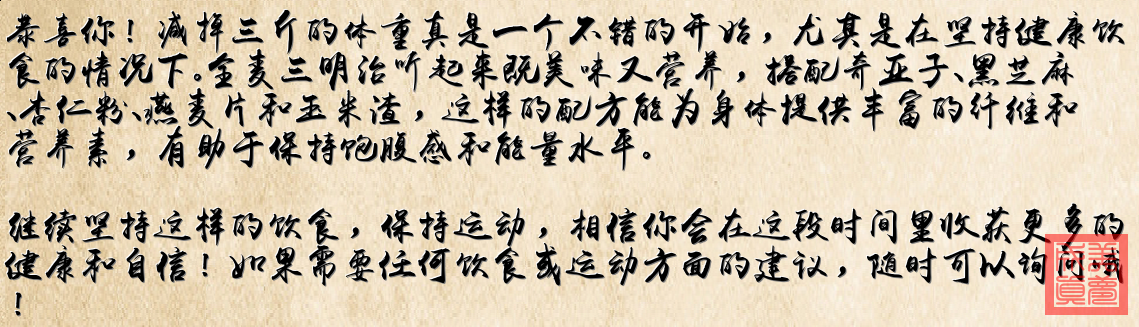 恭喜你！减掉三斤的体重真是一个不错的开始，尤其是在坚持健康饮
食的情况下。全麦三明治听起来既美味又营养，搭配奇亚子、黑芝麻
、杏仁粉、燕麦片和玉米渣，这样的配方能为身体提供丰富的纤维和
营养素，有助于保持饱腹感和能量水平。
继续坚持这样的饮食，保持运动，相信你会在这段时间里收获更多的
健康和自信！如果需要任何饮食或运动方面的建议，随时可以询问哦
！